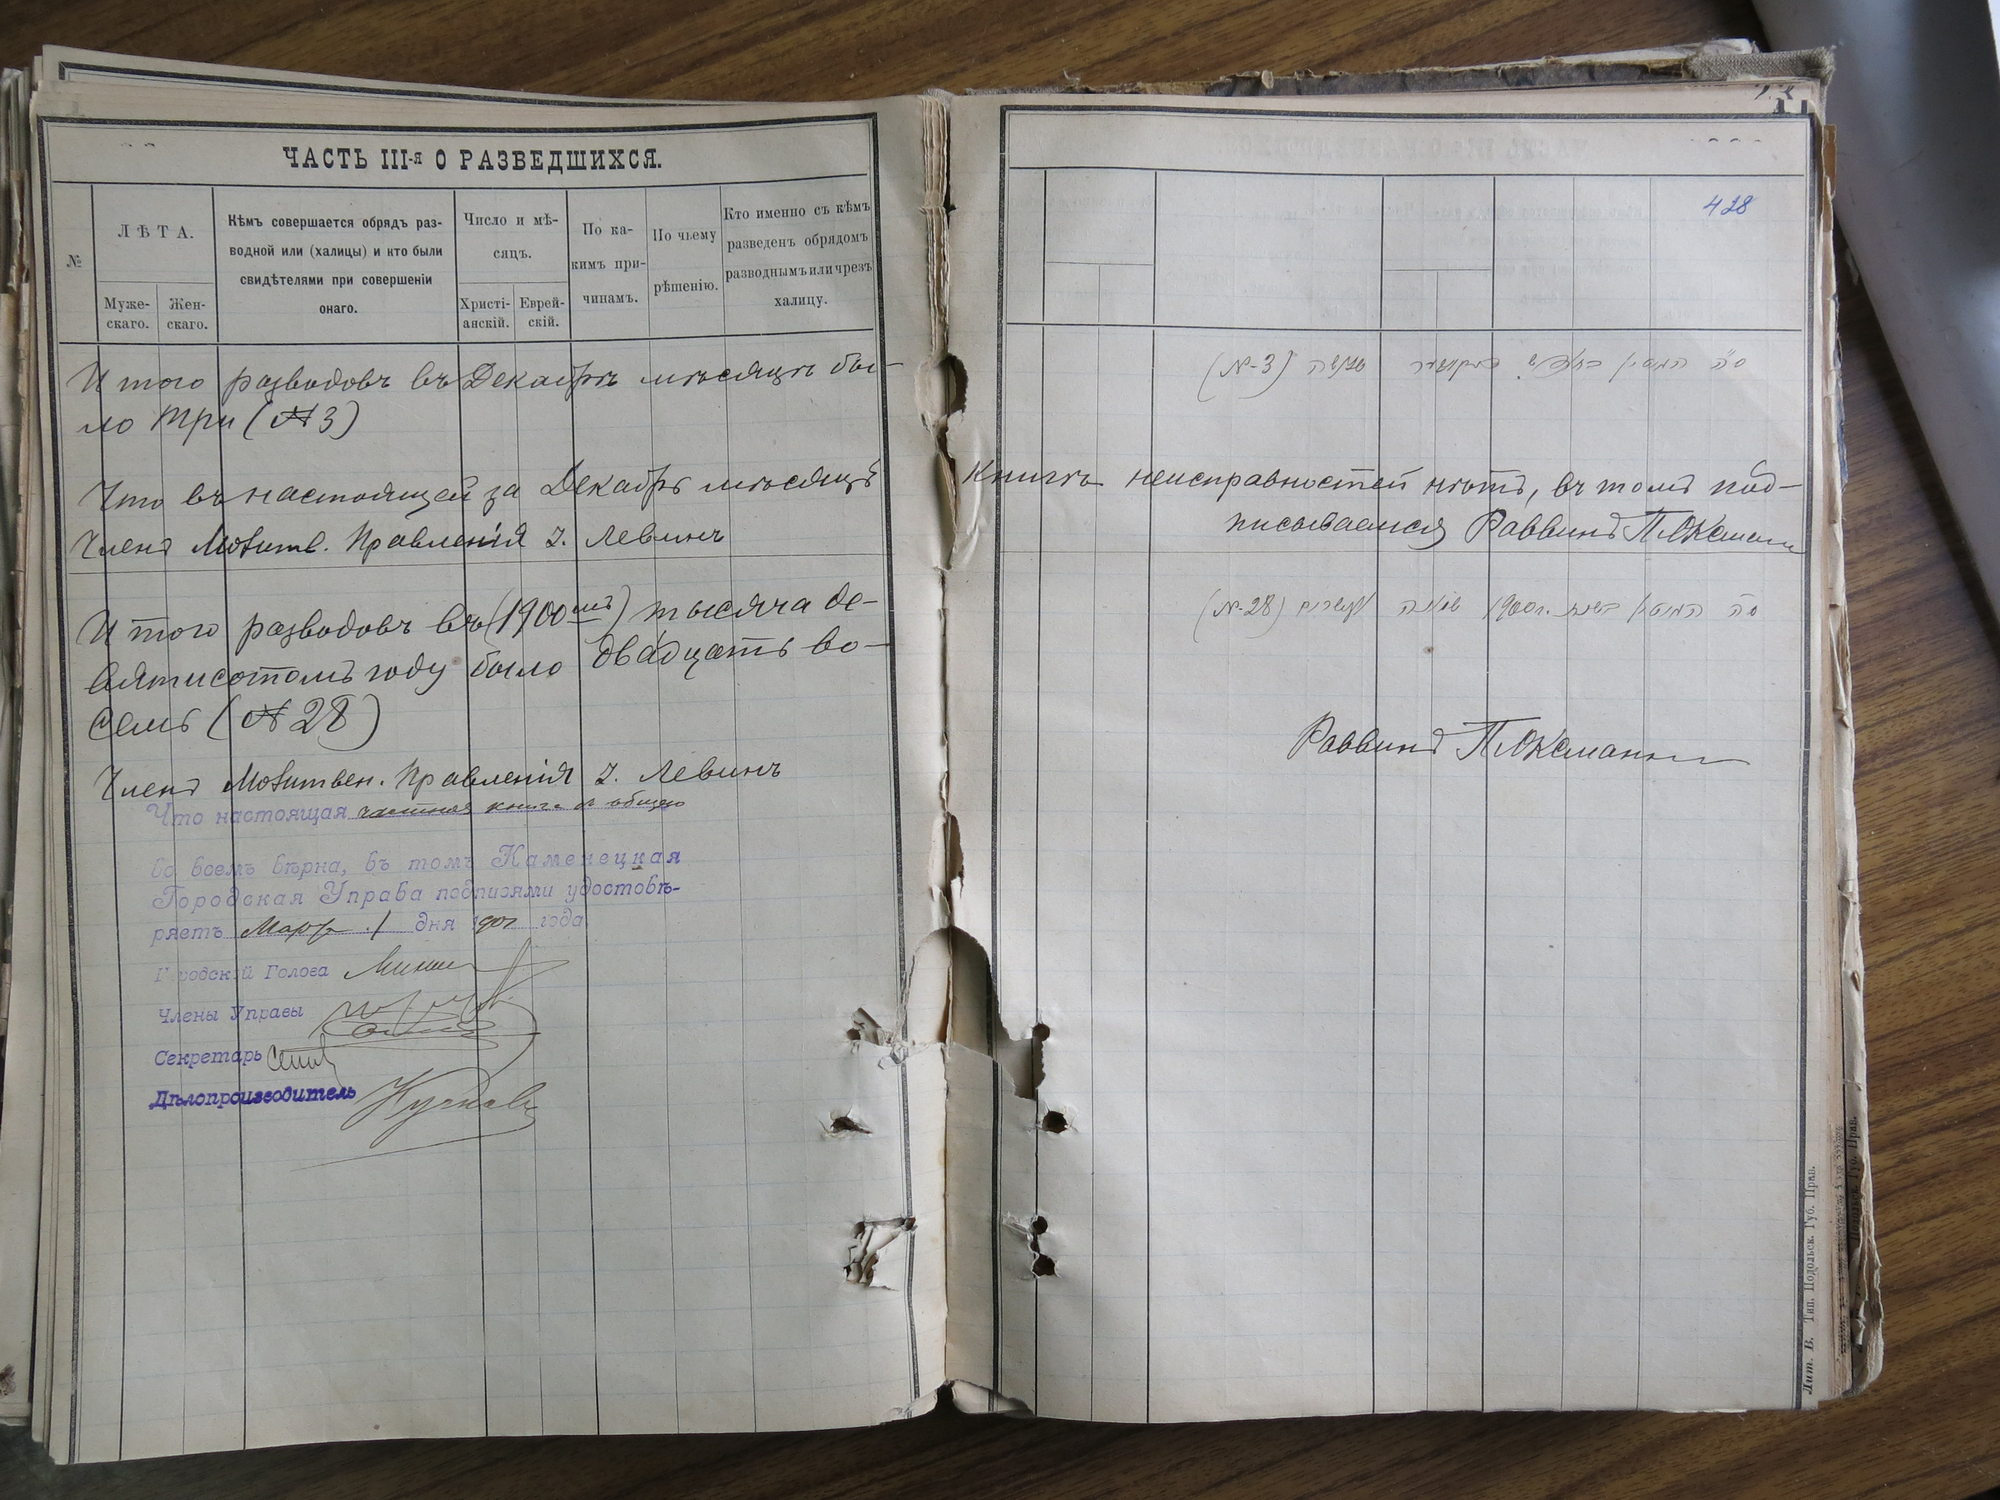 ЧАСТЬ III-я О РАЗВЕДШИХСЯ.
№
ЛѢТА.
Муже-
скаго.
Жен-
скаго.
Кѣмъ совершается обрядъ раз-
водной или (халицы) и кто были
свидѣтелями при совершеніи
онаго.
Число и мѣ-
сяцъ.
Христі-
анскій.
Еврей-
скій.
По ка-
кимъ при-
чинамъ.
По чьему
рѣшенію.
Кто именно съ кѣмъ
разведенъ обрядомъ
разводнымъ или чрезъ
халицу.
Итого разводовъ въ Декабрѣ мѣсяцѣ бы-
ло три (№ 3)
Что въ настоящей за Декабрь мѣсяцъ
Членъ Молитв. Правленія І. Левинъ
Итого разводовъ въ (1900мъ) тысяча де-
вятисотомъ году было двадцать во-
семь (№ 28)
Членъ Молитвен. Правленія І. Левинъ
Что настоящая частная книга съ общею
во всемъ вѣрна, въ томъ Каменецкая
Городская Управа подписями удостовѣ-
ряетъ Марта 1 дня 1901 года
Городской Голова
Члены Управы
Секретарь
Дѣлопроизводитель
428
(№-3)
книгѣ неисправностей нѣтъ, въ томъ под-
писываемся Раввинъ
(№-28) 1900
Раввинъ
Лит. В. Тип. Подольск. Губ. Прав.